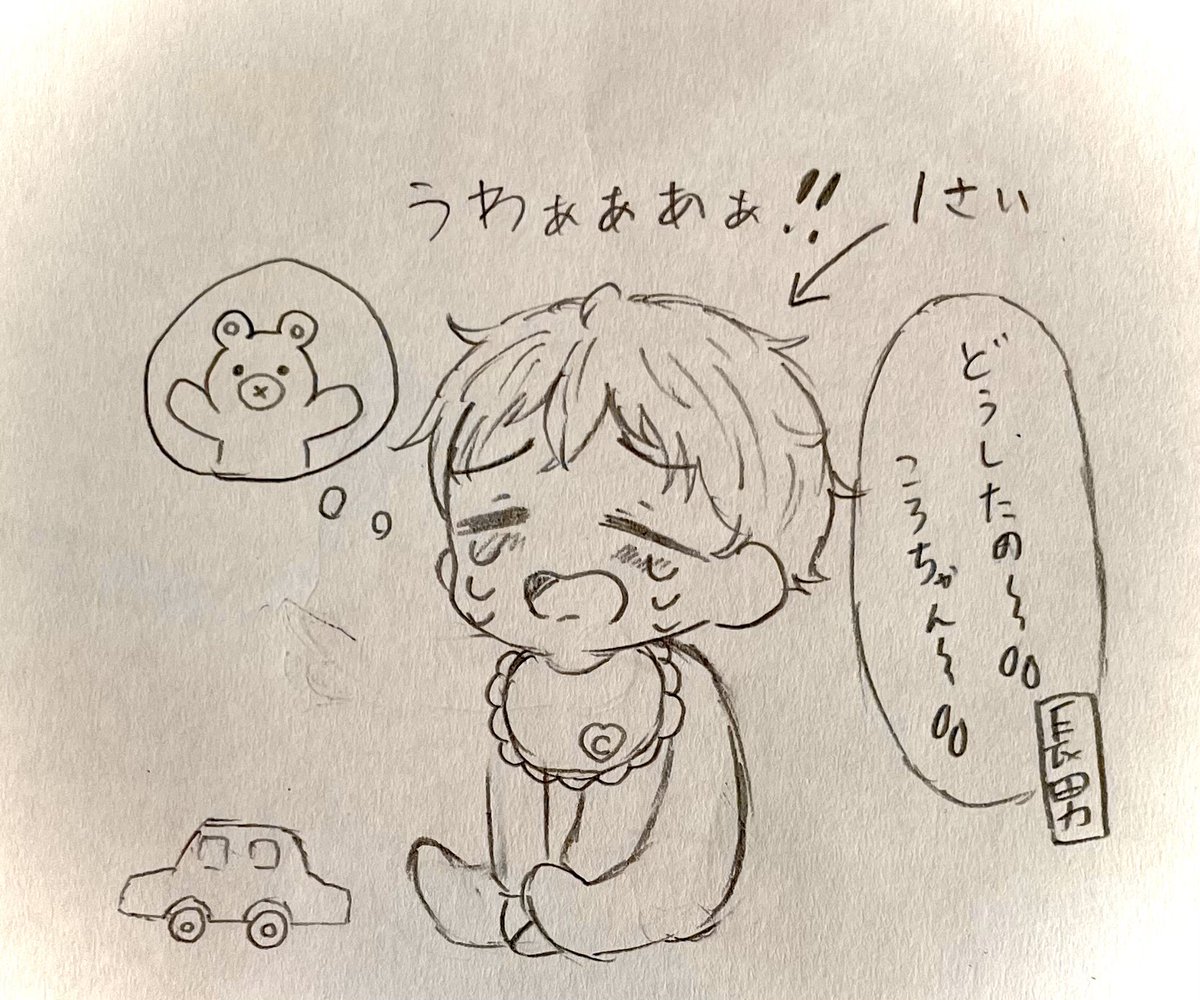 うわぁぁあぁ!!
1さい
どうしたの〜〜
ころちゃん〜〜
長男
C